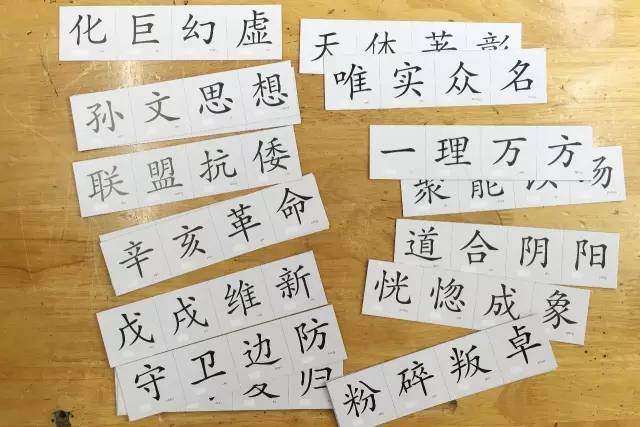 化巨幻虚
孙文思想
联盟抗倭
辛亥革命
戊戌维新
守卫边防
归
天
唯实众名
一理万方
能 场
道合阴阳
恍惚成象
粉碎叛卓